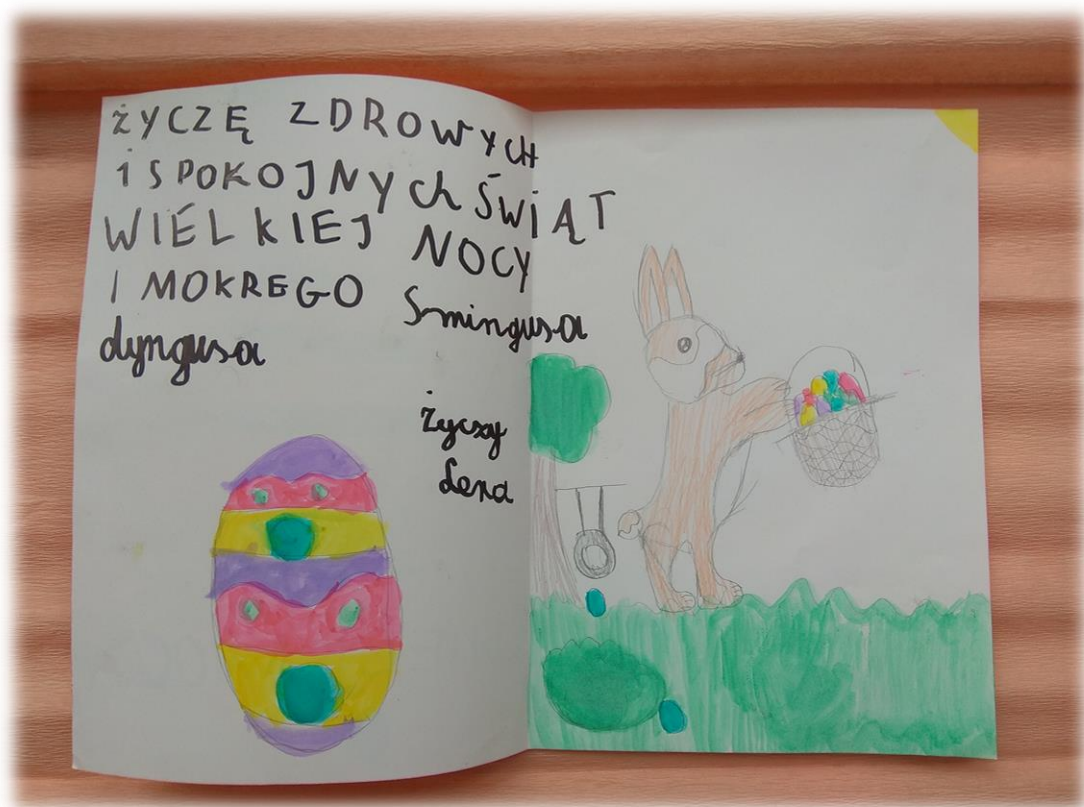 żYCZĘ ZDROWYCH
i SPOKOJNYch ŚWiĄT
WIELKIEJ NOCY
I MOKREGO Smingusa
dyngusa
życzy
Lena